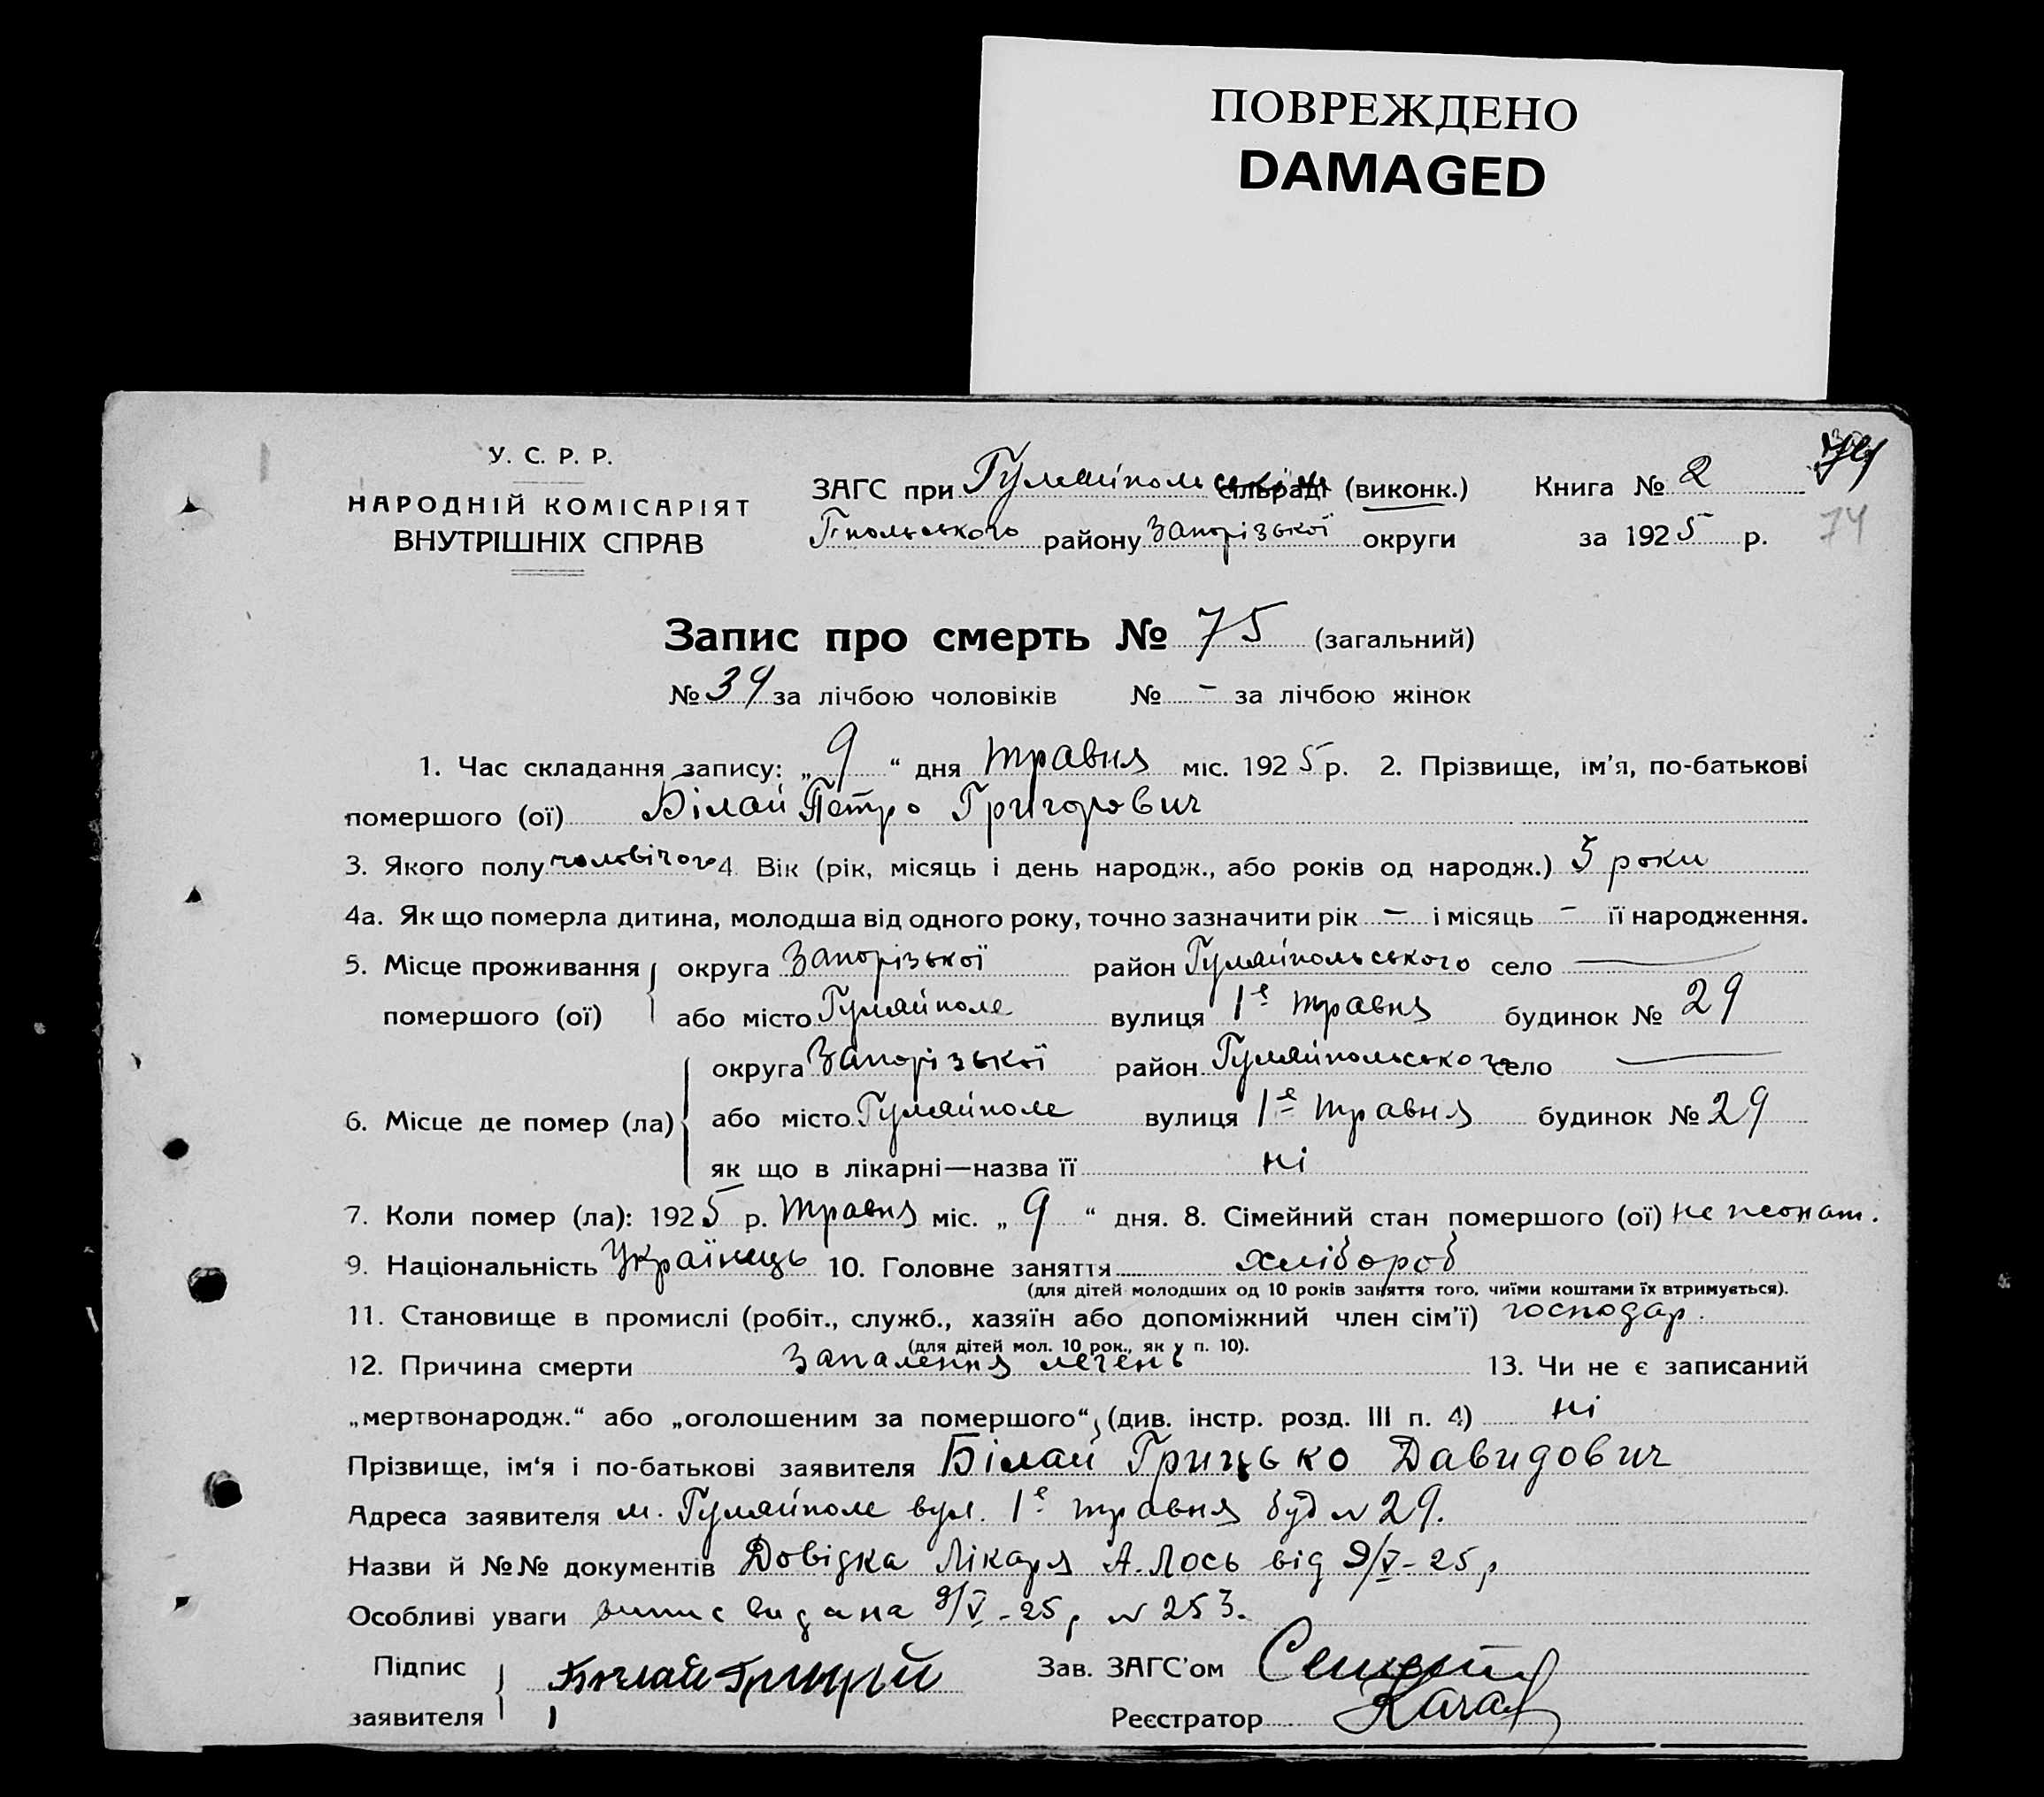 ПОВРЕЖДЕНО
DAMAGED
У. С. Р. Р.
НАРОДНІЙ КОМІСАРІЯТ
ВНУТРІШНІХ СПРАВ
ЗАГС при Гуляйпольськім сільраді (виконк.)
Г-польського району Запорізької округи
Книга № 2
за 1925 р.
74
Запис про смерть № 75 (загальний)
№ 39 за лічбою чоловіків № – за лічбою жінок
1. Час складання запису: „ 9 “ дня травня міс. 1925 р. 2. Прізвище, ім'я, по-батькові
помершого (ої) Білай Петро Григорович
3. Якого полу чоловічого 4. Вік (рік, місяць і день народж., або років од народж.) 5 роки
4а. Як що померла дитина, молодша від одного року, точно зазначити рік – і місяць – її народження.
5. Місце проживання округа Запорізької район Гуляйпольського село —
помершого (ої) або місто Гуляйполе вулиця 1е травня будинок № 29
округа Запорізької район Гуляйпольського село —
6. Місце де помер (ла) або місто Гуляйполе вулиця 1е травня будинок № 29
як що в лікарні—назва її ні
7. Коли помер (ла): 1925 р. травня міс. „ 9 “ дня. 8. Сімейний стан помершого (ої) не жонат.
9. Національність Українець 10. Головне заняття хлібороб
(для дітей молодших од 10 років заняття того, чиїми коштами їх втримується).
11. Становище в промислі (робіт., служб., хазяїн або допоміжний член сім'ї) господар.
(для дітей мол. 10 рок., як у п. 10).
12. Причина смерти Запалення легень 13. Чи не є записаний
„мертвонародж.“ або „оголошеним за помершого“, (див. інстр. розд. III п. 4) ні
Прізвище, ім'я і по-батькові заявителя Білай Грицько Давидович
Адреса заявителя м. Гуляйполе вул. 1е травня буд № 29.
Назви й №№ документів Довідка Лікаря А. Лось від 9/V-25 р
Особливі уваги випис видана 9/V-25 р № 253.
Підпис
заявителя
Зав. ЗАГС'ом
Реєстратор